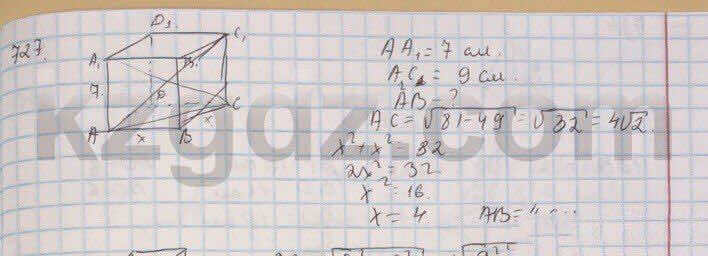 727.
D₁
C₁
A₁
B₁
7
D
C
A
x
B
x
AA₁ = 7 см.
AC₁ = 9 см.
AB = ?
AC = √81-49 = √32 = 4√2.
x² + x² = 32
2x² = 32
x² = 16
x = 4
AB = 4 ...
kzgdz.com